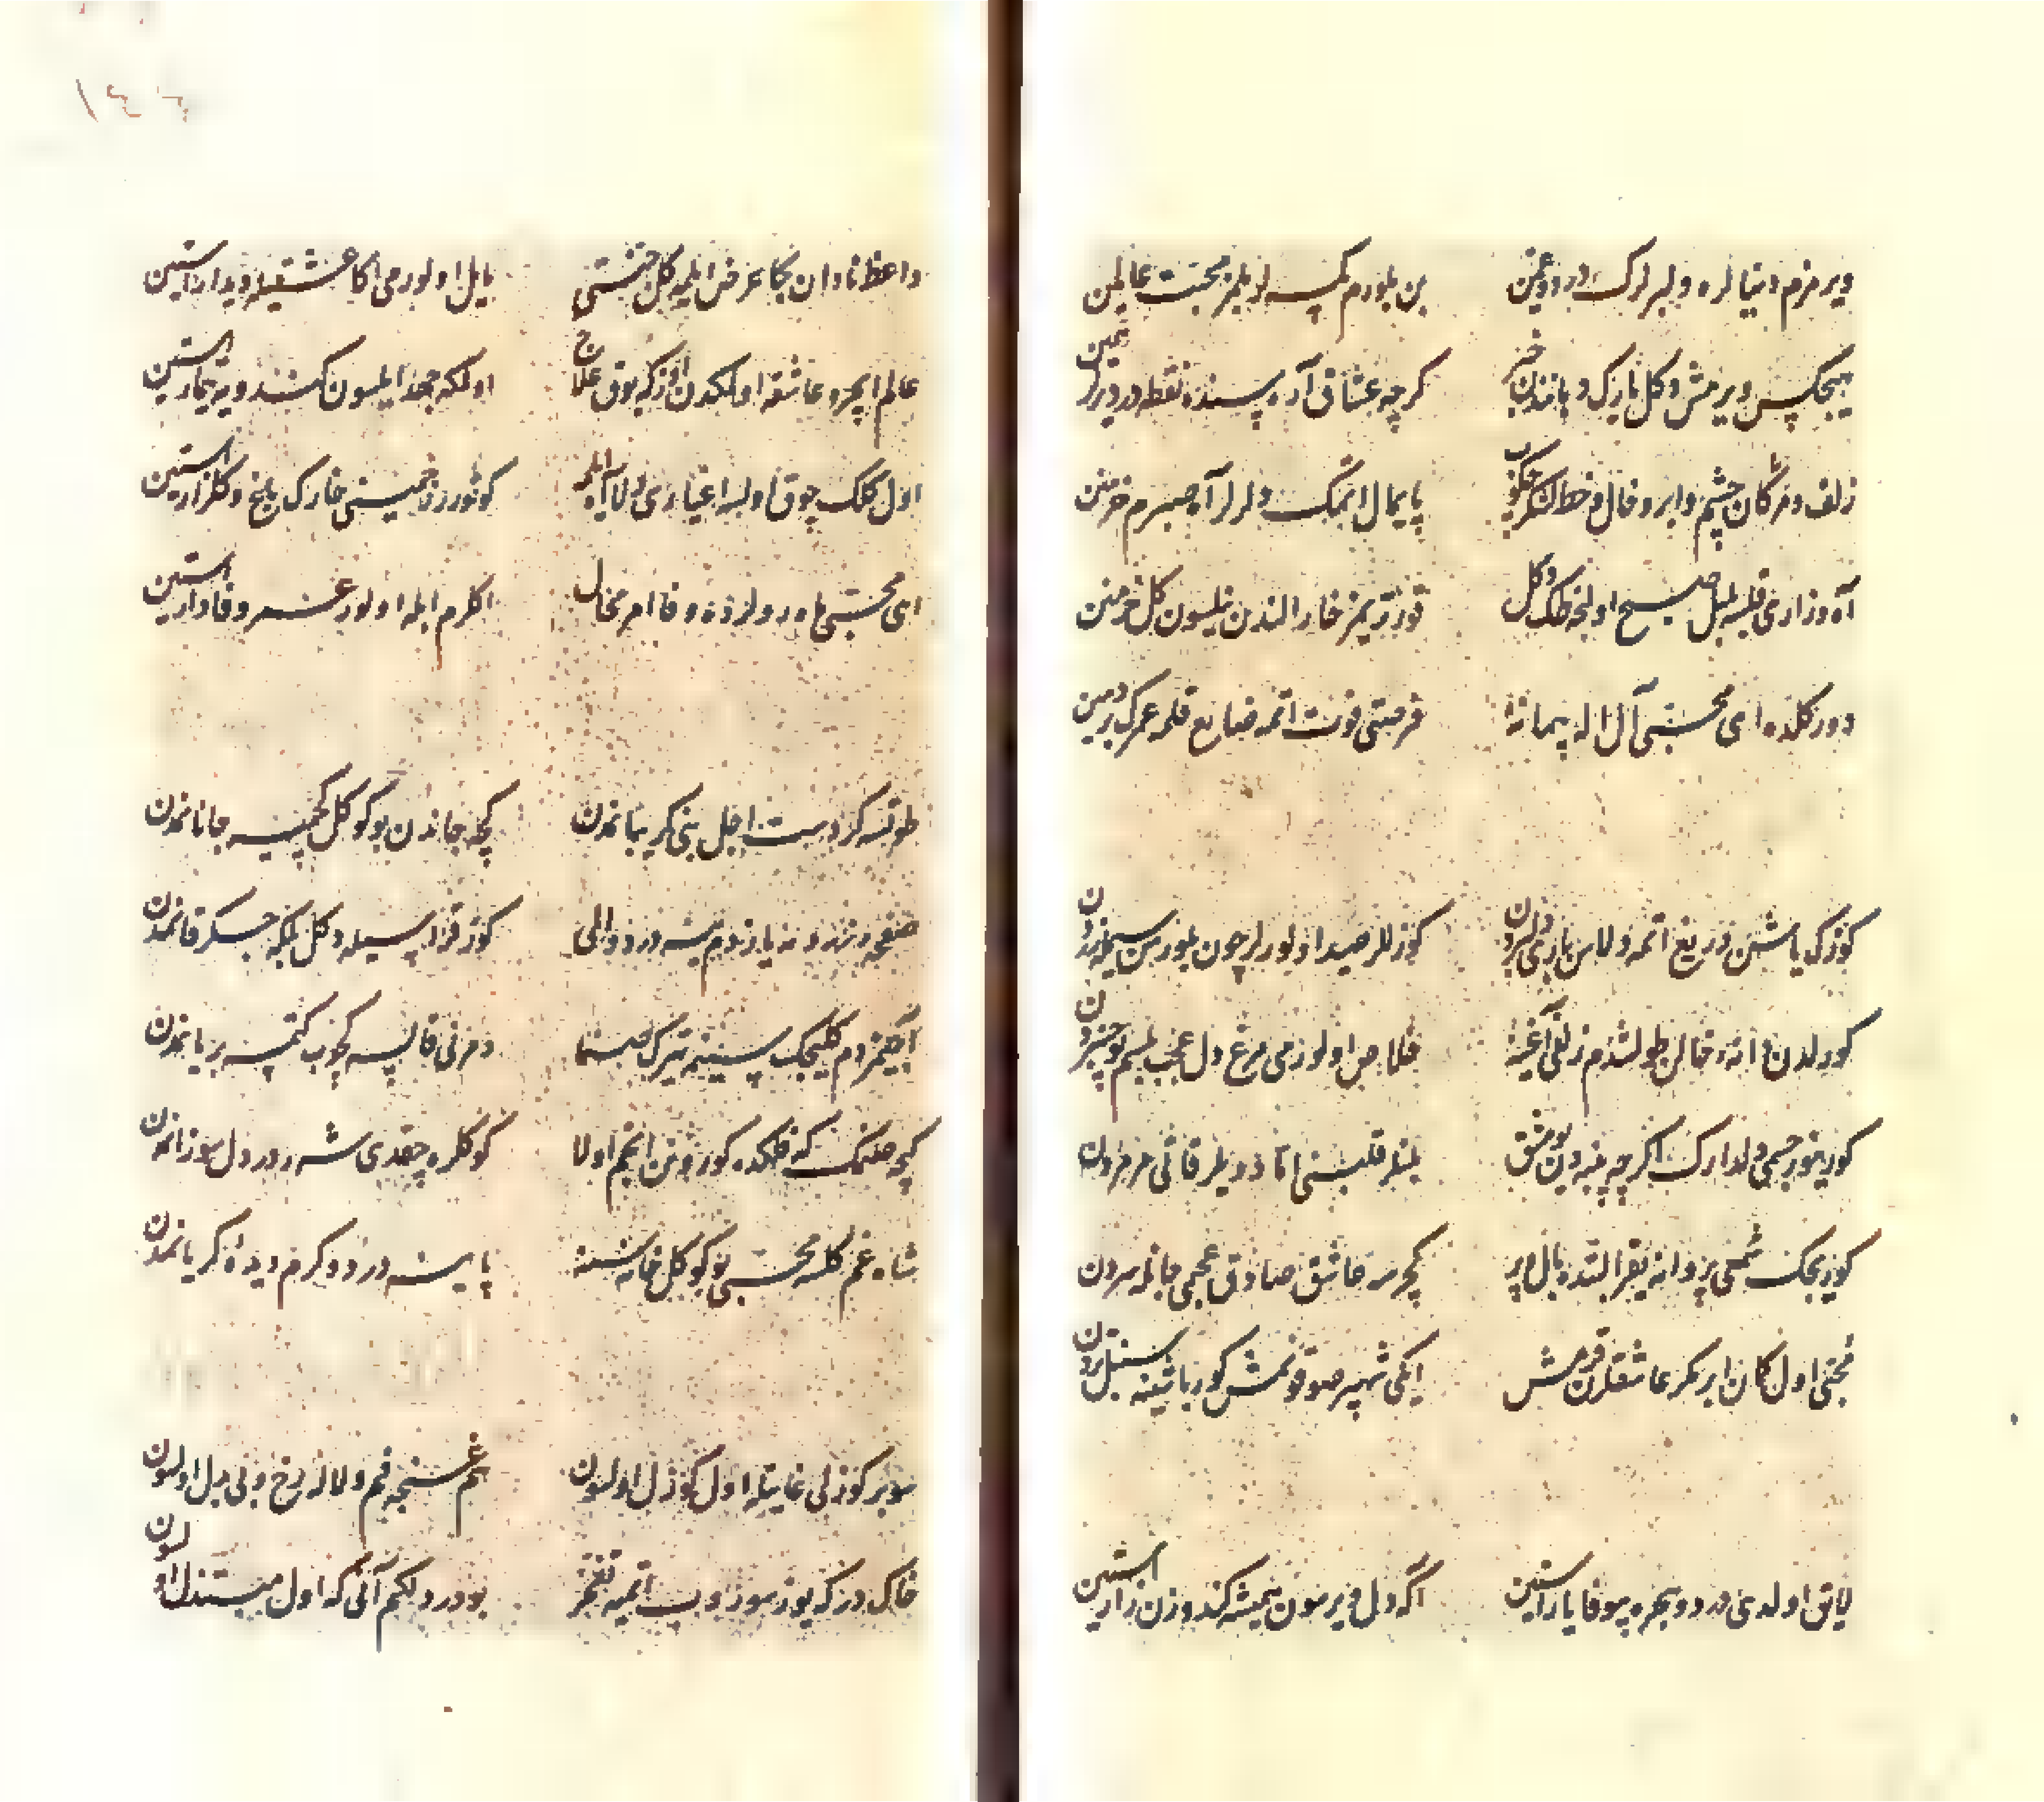 ویرمزم دنیالره دلبرلرک درد و غمن
بن بلورم کیمسه لر بلمز محبت عالمن
هیچکس ویرمش دکل یارک دهانندن خبر
کرچه عشاق آره سنده نقطه در دیرلر
زلف و مژکان چشم و ابرو خال و خطک لشکری
پایمال ایتمک دلرلر آه صبرم خرمنن
آه و زاری قیلسه بلبل صبح اولنجه طک دکل
قورتریمز خار الندن نیلسون کل خرمنن
دور کلده ای محبی آل اله پیمانه
فرصتی فوت اتمه ضایع قلمه عمرک بر دمن
کوزک یاشن دریغ اتمه دلا سن یاری کوردن
کوزللر صید اولورلر چون بلورسن سیم زردن
کورلدن دانه خالن طولشدم زلفی آغینه
خلاص اولورمی مرغ دل عجب بلسم بو چنبردن
کورینور جسمی دلدارک اکرچه پنبه دن یومشق
بلنلر قلبنی آنا دیدیلر قاتی مرمردن
کوریجک شمعی پروانه یقر البتده بال و پر
کچرسه عاشق صادق عجبمی جانله سردن
محبی اول کمان ابرولر عاشقلرن قرمش
ایکی شهپر صوقونمش کور باشینه سنبل تردن
لایق اولدی درد و هجره بیوفا یار استین
آکه دل ویرسون همیشه کندوزن زار استین
واعظ نادان بکا عرض ایلمه کل جنتی
مایل اولورمی اکا عشقیله دیدار استین
عالم ایچره عاشقه اولمکدن اوزکه یوق علاج
اولمکه جهد ایلسون کندویه تیمار استین
اول کلک چوق اولسه اغیاری دلا آه ایلمه
کوتورر زحمتنی خارک باغ و کلزار استین
ای محبی ماه رولرده وفا امر محال
اکلرم ابله اولور عمر وفادار استین
طوتسه کر دست اجل بنی کریبانمدن
کچه جاندن بو کوکل کچمیسه جانانمدن
صفحه دیزنده نه یازدم نیسه درد دلی
کوز قراسیله دکل بلکه جکر قانمدن
آجلمزدم کلیجک سینمه تیرک صنما
دمرنی قالیسه کچوب کتمسه بریانمدن
کیجه صنمک که فلکده کورینن انجم اولا
کوکلره چقدی شرر در دل سوزانمدن
شاه غم کلسه محبی بو کوکل خانه سنه
پایینه در دوکرم دیده کریانمدن
سوبر کوزلی غایتله اول کوزل اولسون
هم غنچه فم و لاله رخ و بی بدل اولسون
خاک درکه یوز سوروب اتمیه تفخر
بودر دلکم آنی که اول مبتذل اولسون